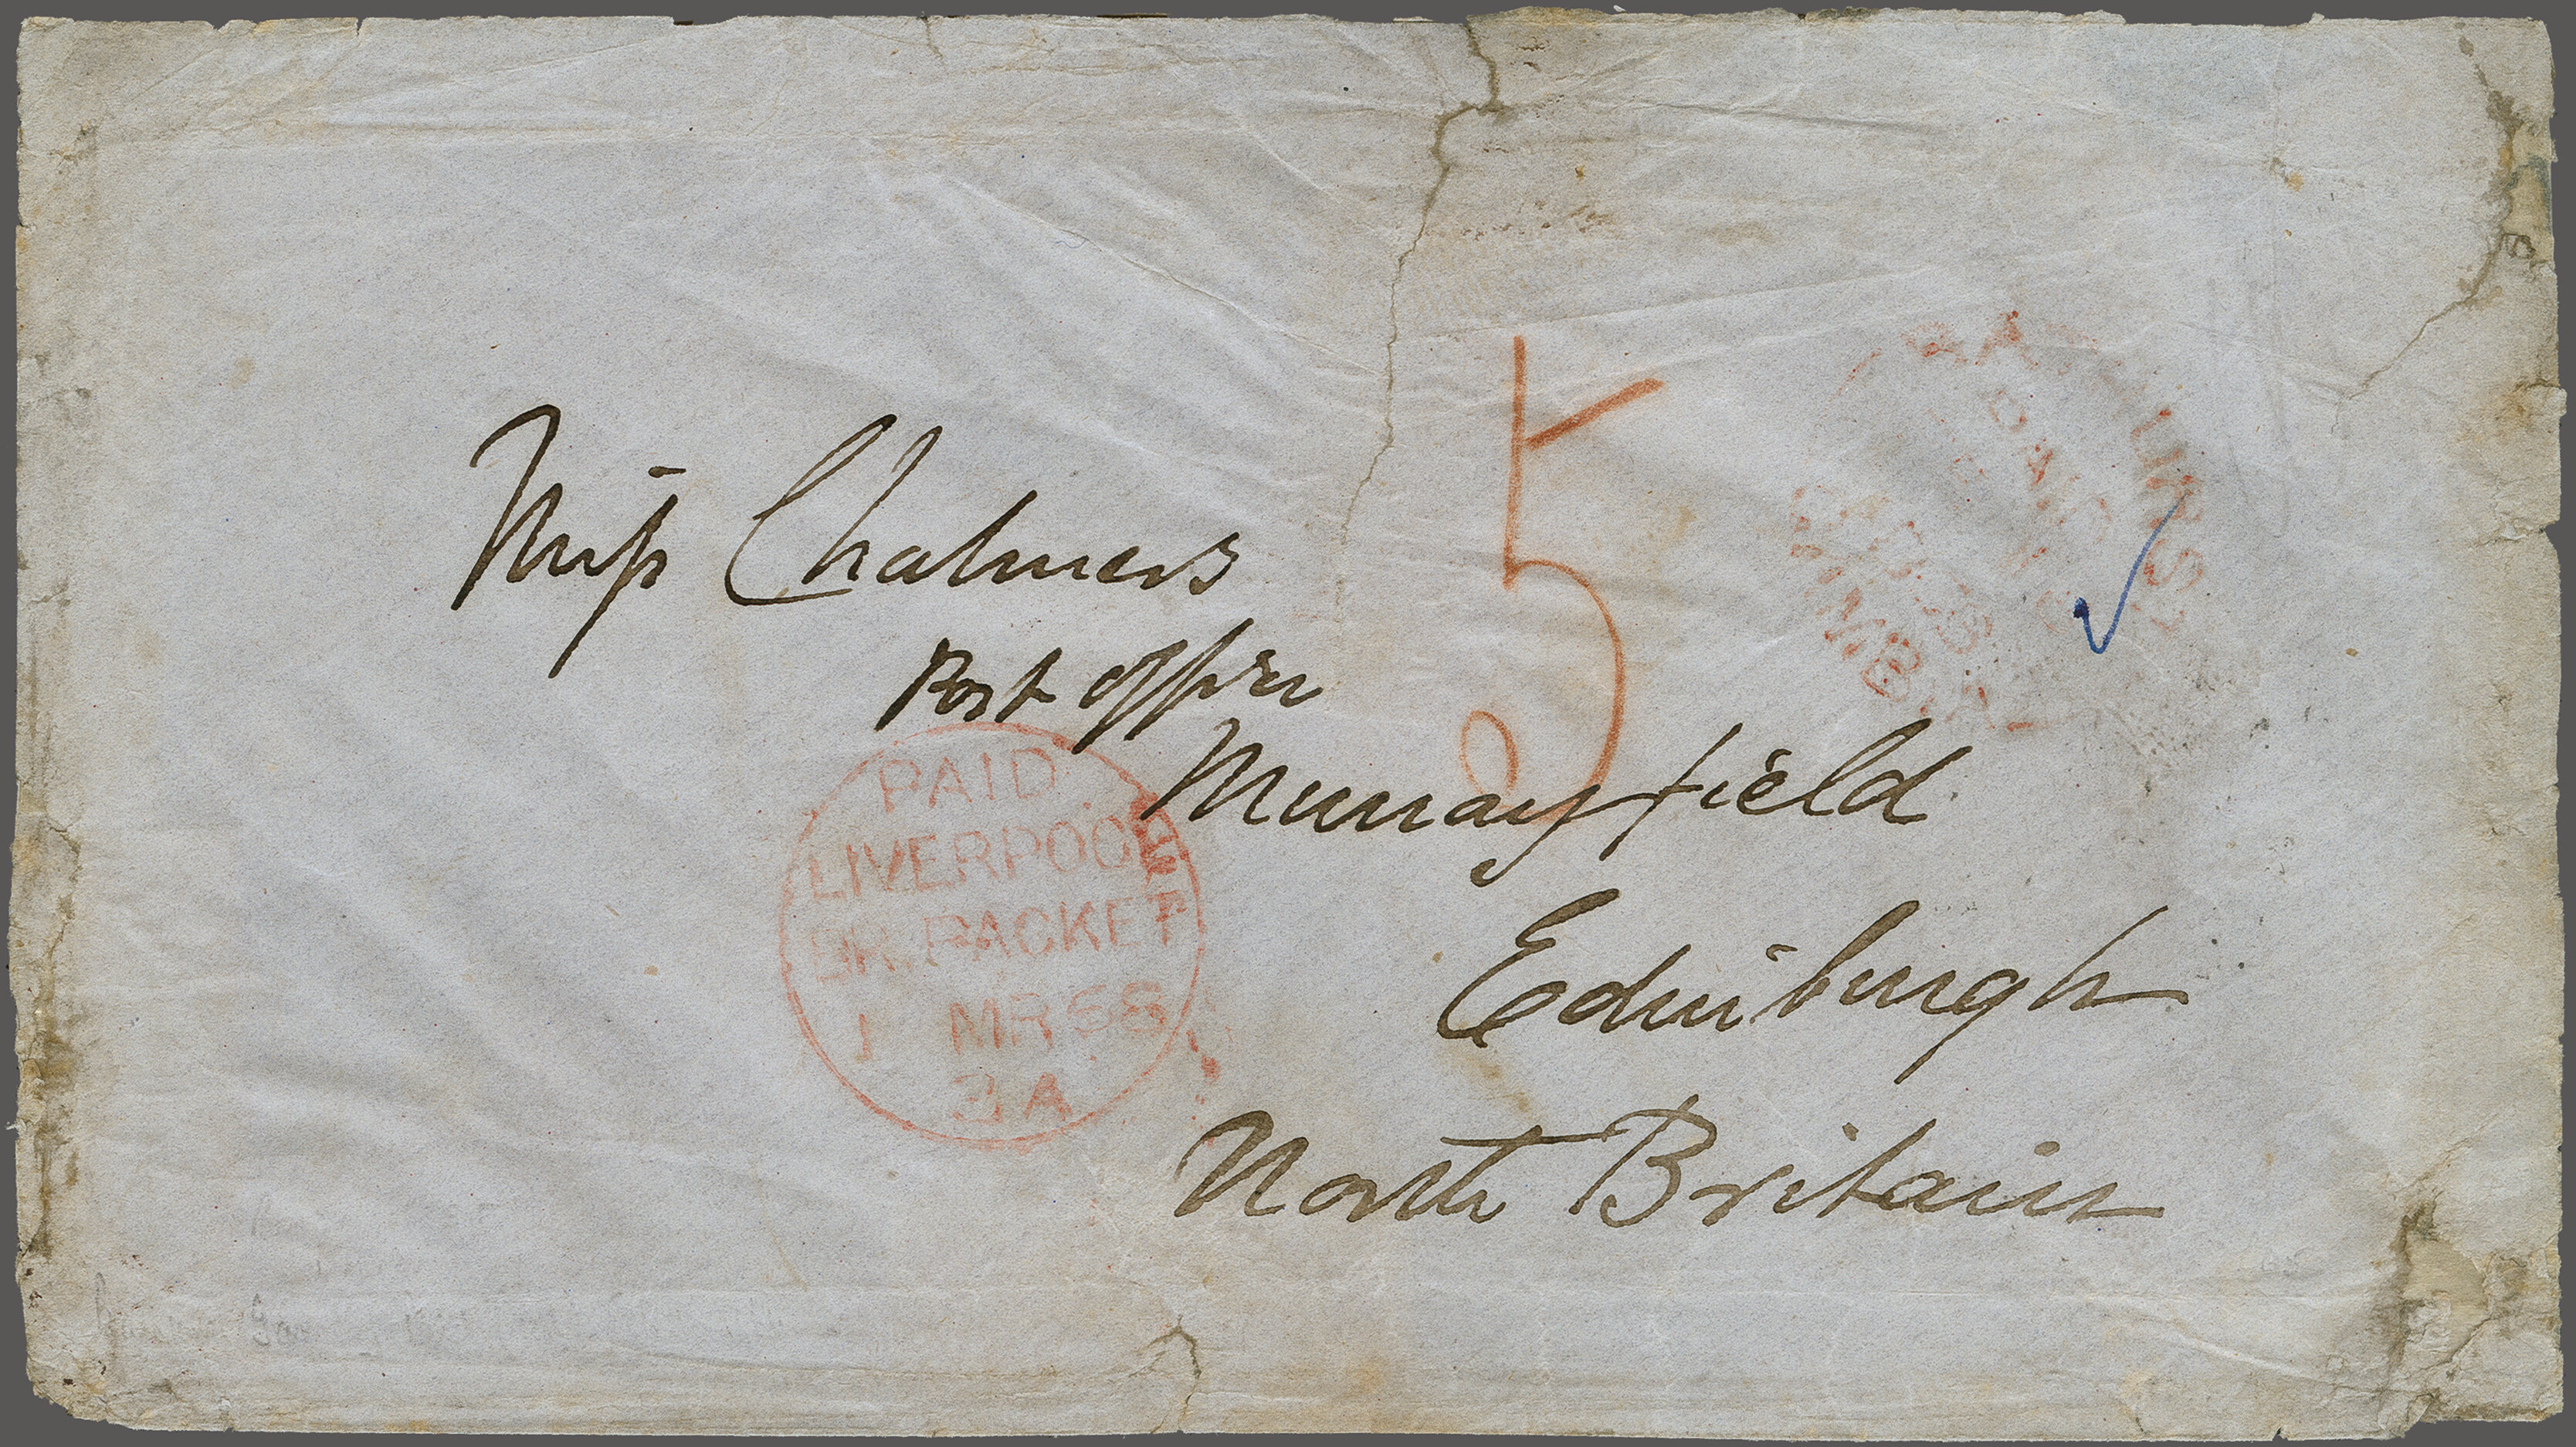 5
PAID
Miſs Chalmers
Post office
Murrayfield
Edinburgh
North Britain
PAID
LIVERPOOL
BR. PACKET
1 MR 58
3 A